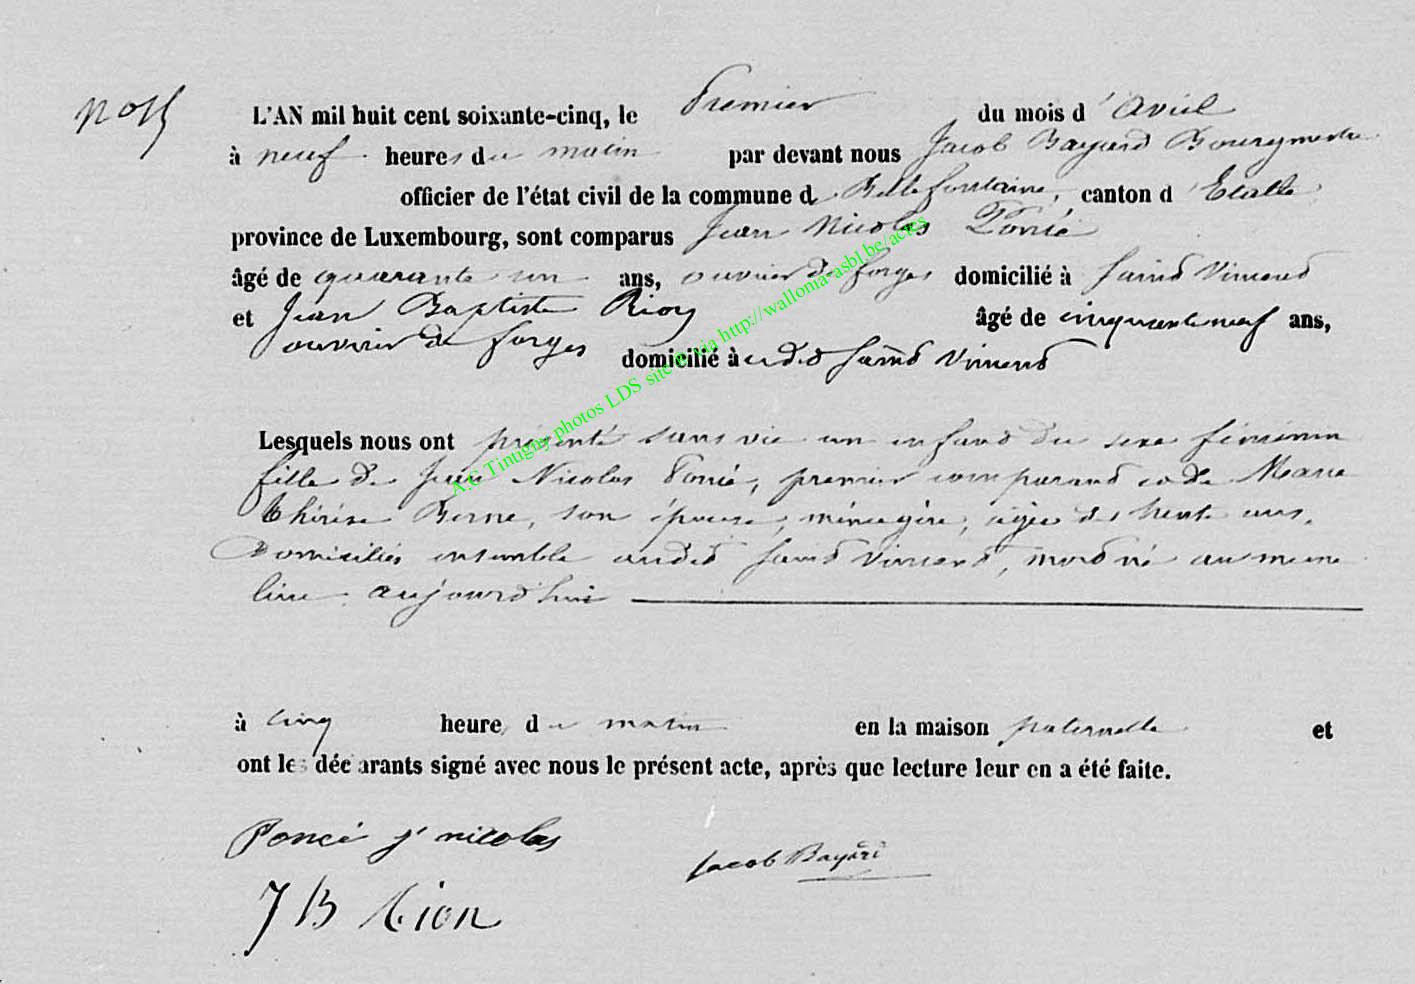 No 15
L'AN mil huit cent soixante-cinq, le Premier du mois d'Avril
à neuf heures du matin par devant nous Jacob Bayard Bourgmestre
officier de l'état civil de la commune de Bellefontaine, canton d'Etalle
province de Luxembourg, sont comparus Jean Nicolas Poncé
âgé de quarante un ans, ouvrier de forges domicilié à Saint Vincent
et Jean Baptiste Rion âgé de cinquante neuf ans,
ouvrier de forges domicilié à udit Saint Vincent
Lesquels nous ont présenté sans vie un enfant du sexe féminin
fille de Jean Nicolas Poncé, premier comparant et de Marie
Thérèse Berne, son épouse, ménagère, agée de trente ans,
Domiciliés ensemble audit Saint Vincent, mort né au meme
lieu aujourd'hui
à cinq heure du matin en la maison paternelle et
ont les déclarants signé avec nous le présent acte, après que lecture leur en a été faite.
Poncé j nicolas
Jacob Bayard
J B Rion
A.C Tintigny photos LDS site © via http://wallonia-asbl.be/actes